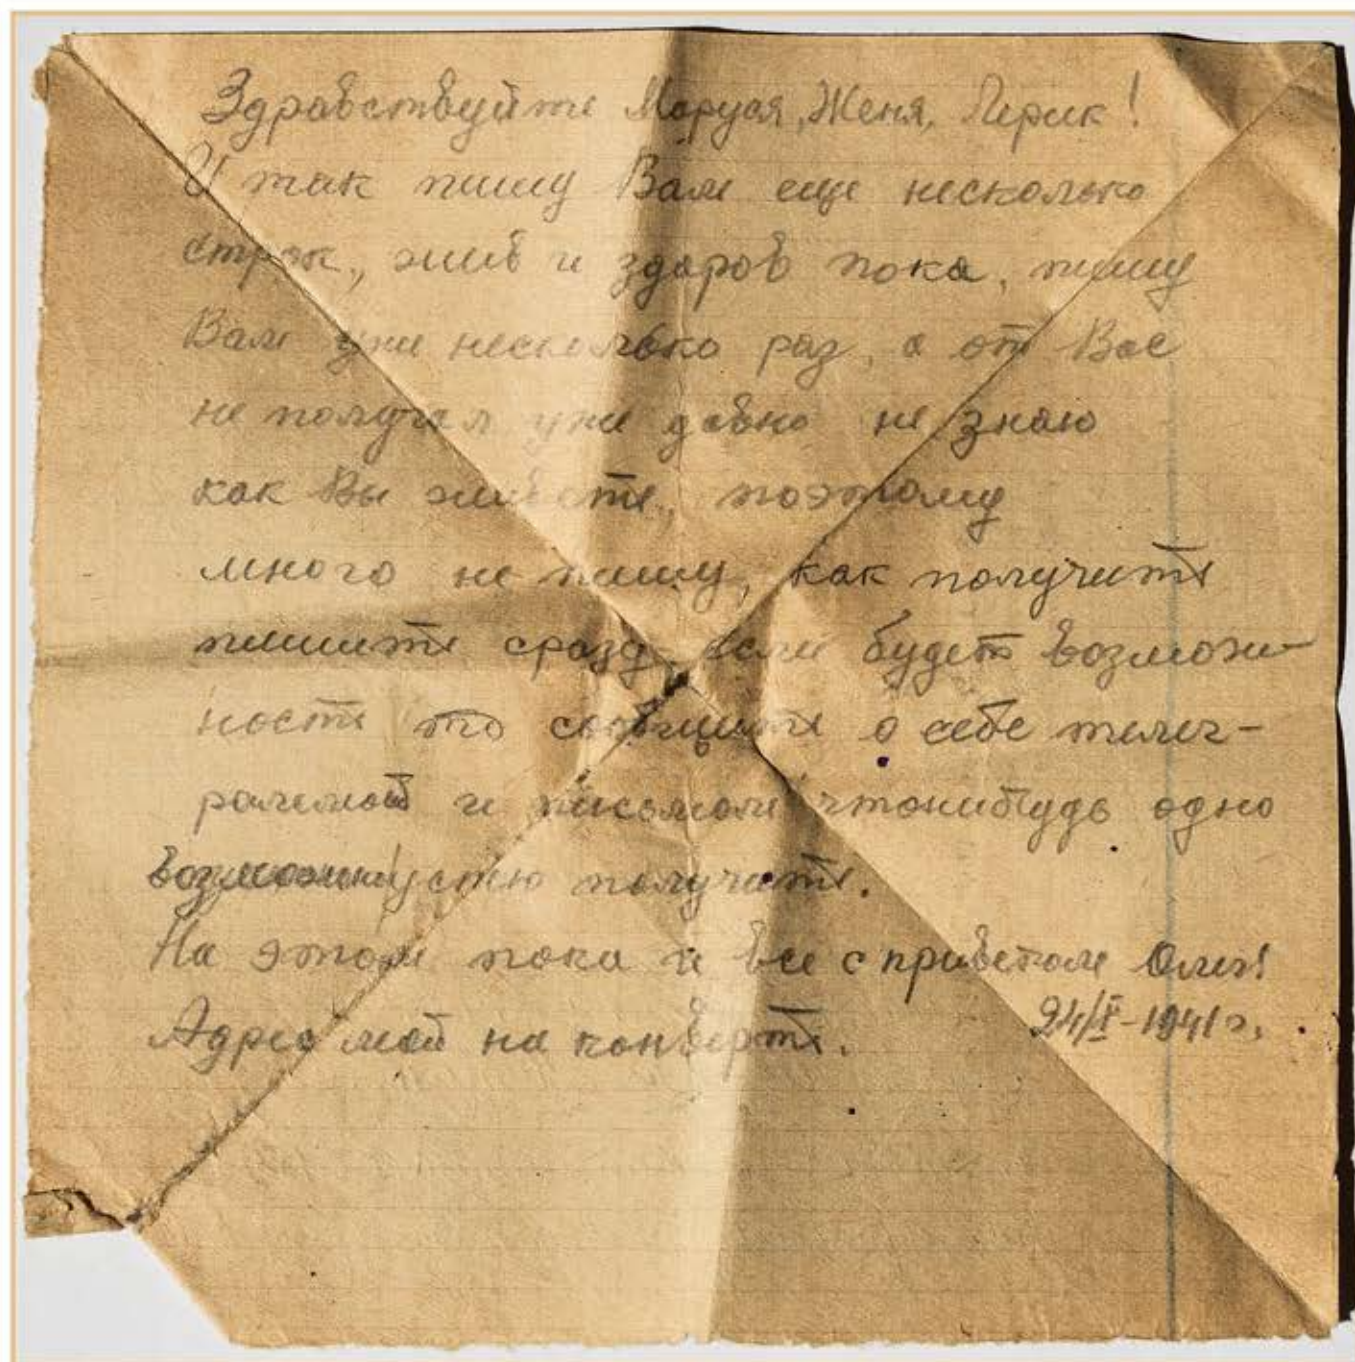 Здравствуйте Маруся, Женя, Лерик!
И так пишу Вам еще несколько
строк, жив и здоров пока, пишу
Вам уже несколько раз, а от Вас
не получал уже давно не знаю
как Вы живете, поэтому
много не пишу, как получите
пишите сразу, если будет возмож-
ность то сообщите о себе телег-
раммой и письмом чтонибудь одно
получите.
На этом пока и все с приветом Олег!
Адрес мой на конверте.
1941 г.